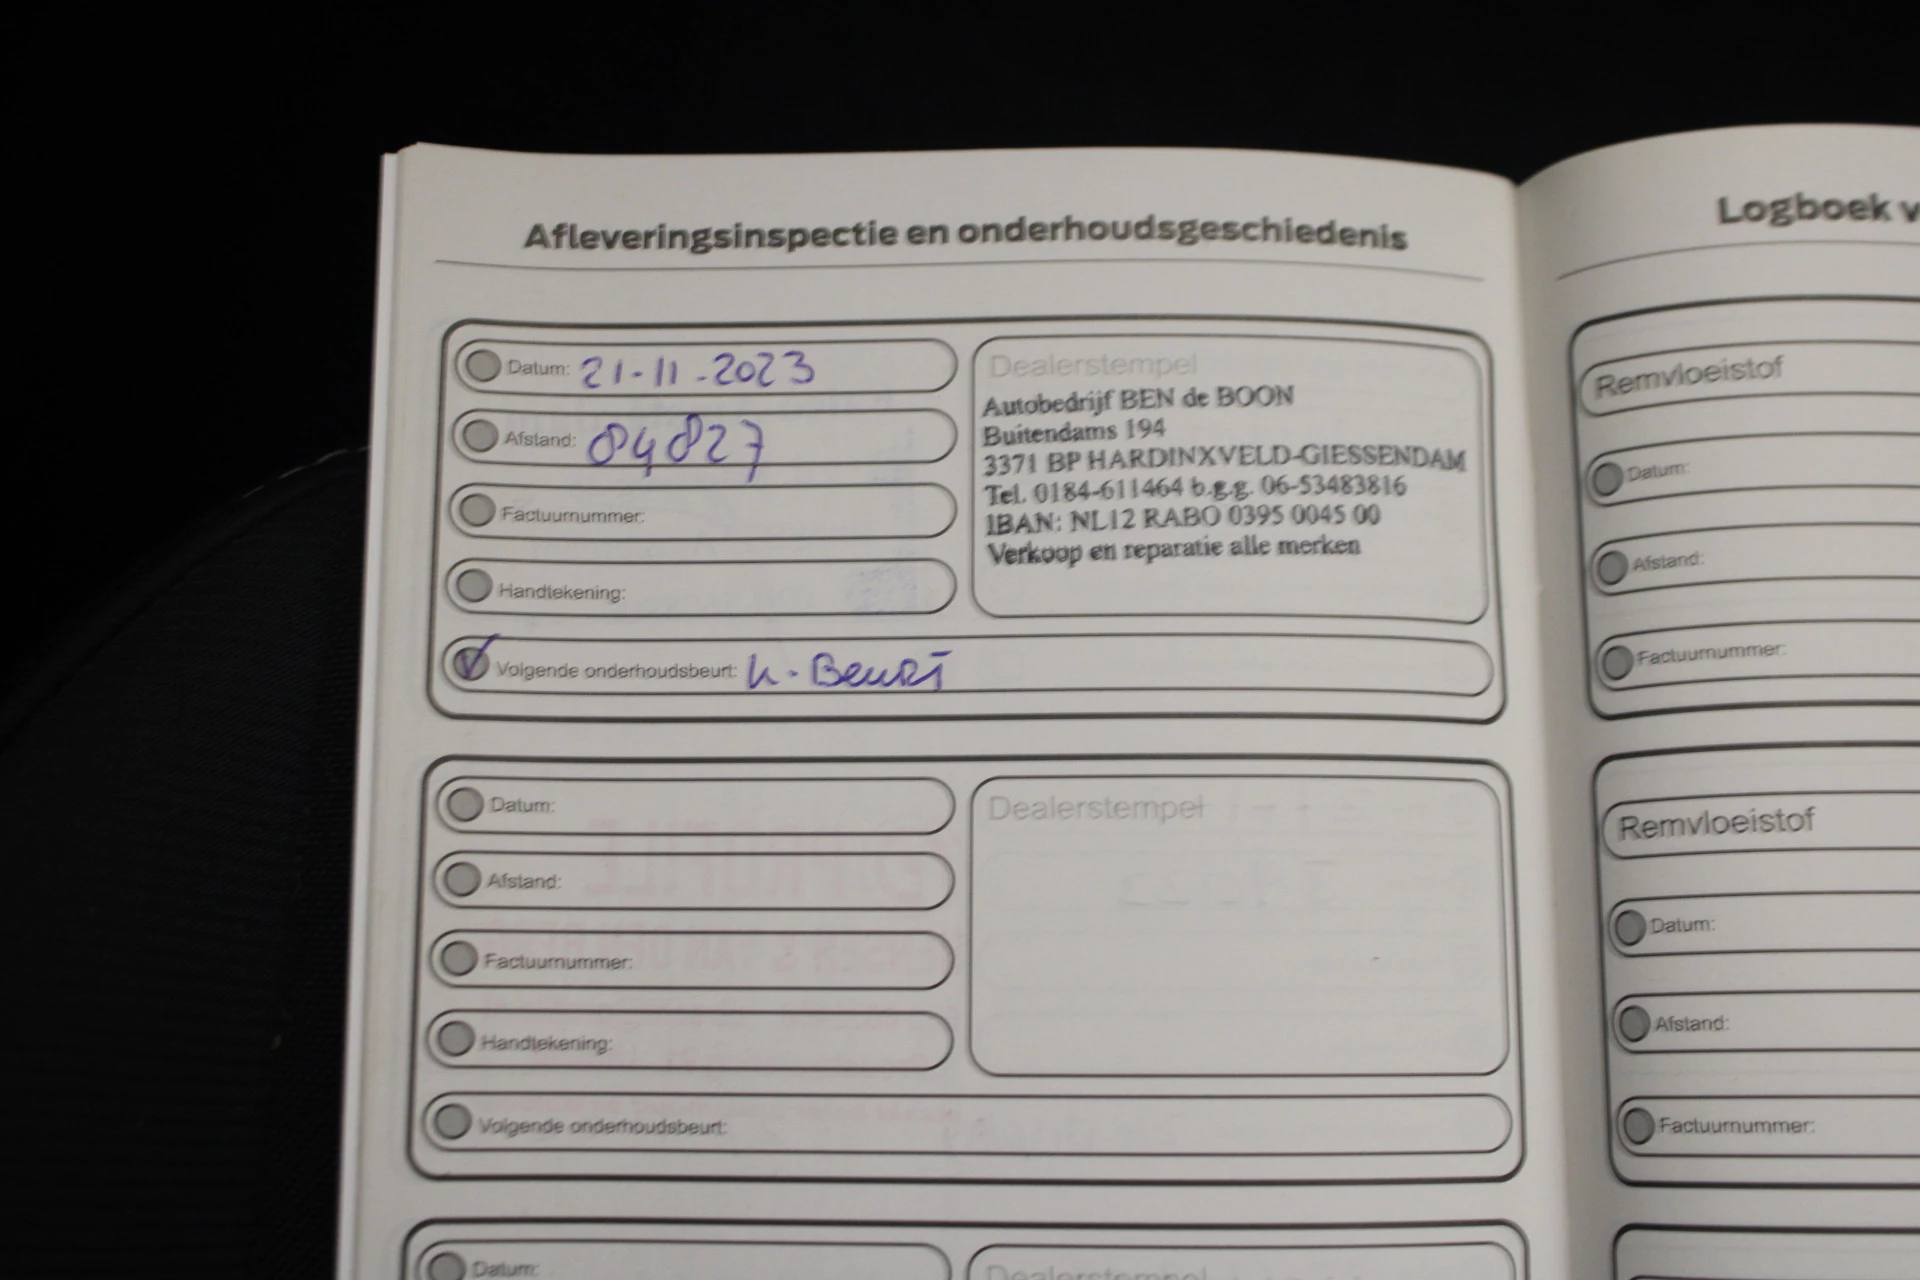 Afleveringsinspectie en onderhoudsgeschiedenis
Datum: 21-11-2023
Afstand: 84827
Factuurnummer:
Handtekening:
Volgende onderhoudsbeurt: K-Beurt
Dealerstempel
Autobedrijf BEN de BOON
Buitendams 194
3371 BP HARDINXVELD-GIESSENDAM
Tel. 0184-611464 b.g.g. 06-53483816
IBAN: NL12 RABO 0395 0045 00
Verkoop en reparatie alle merken
Datum:
Afstand:
Factuurnummer:
Handtekening:
Volgende onderhoudsbeurt:
Dealerstempel
Datum:
Dealerstempel
Logboek v
Remvloeistof
Datum:
Afstand:
Factuurnummer:
Remvloeistof
Datum:
Afstand:
Factuurnummer: